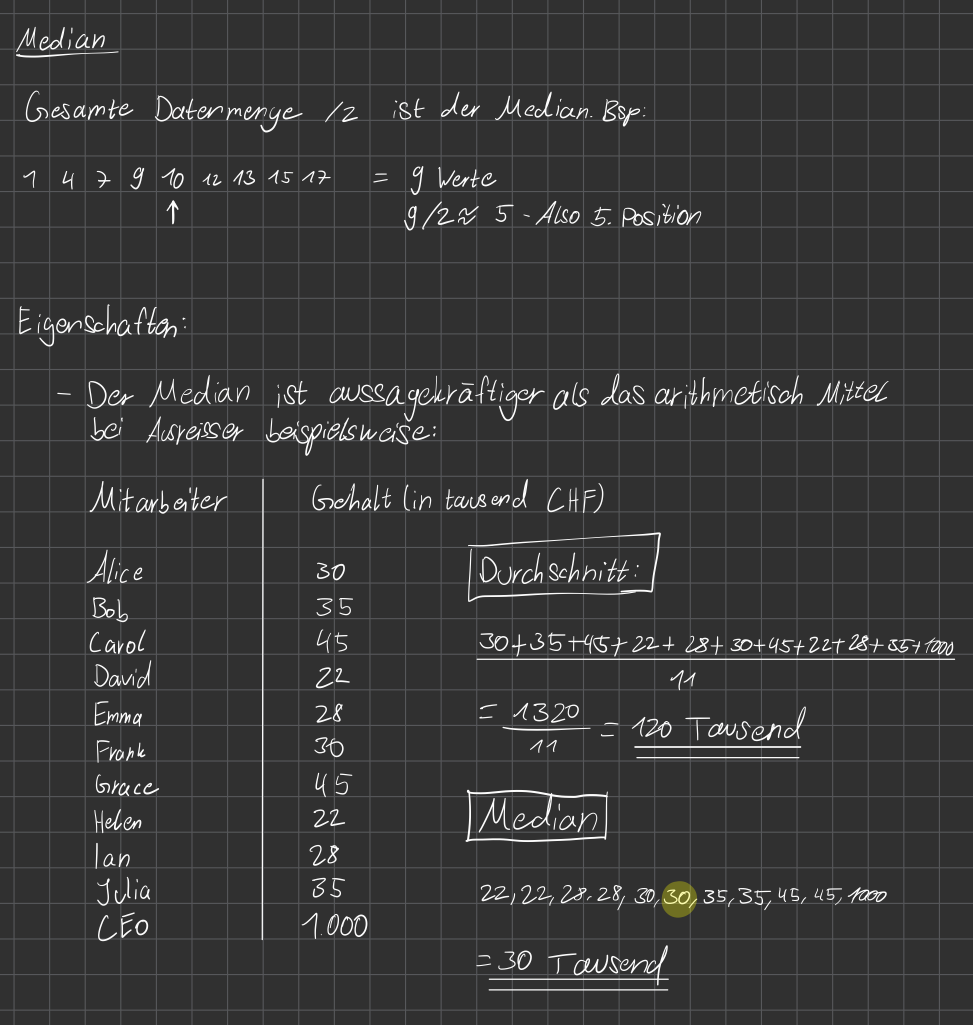 Median
Gesamte Datenmenge /2 ist der Median. Bsp:
1 4 7 9 10 12 13 15 17 = 9 Werte
↑ 9/2 ≈ 5 - Also 5. Position
Eigenschaften:
- Der Median ist aussagekräftiger als das arithmetisch Mittel
bei Ausreisser beispielsweise:
Mitarbeiter Gehalt (in tausend CHF)
Alice 30
Bob 35
Carol 45
David 22
Emma 28
Frank 30
Grace 45
Helen 22
Ian 28
Julia 35
CEO 1.000
Durchschnitt:
30+35+45+22+28+30+45+22+28+35+1000
11
= 1320 / 11 = 120 Tausend
Median
22, 22, 28, 28, 30, 30, 35, 35, 45, 45, 1000
= 30 Tausend